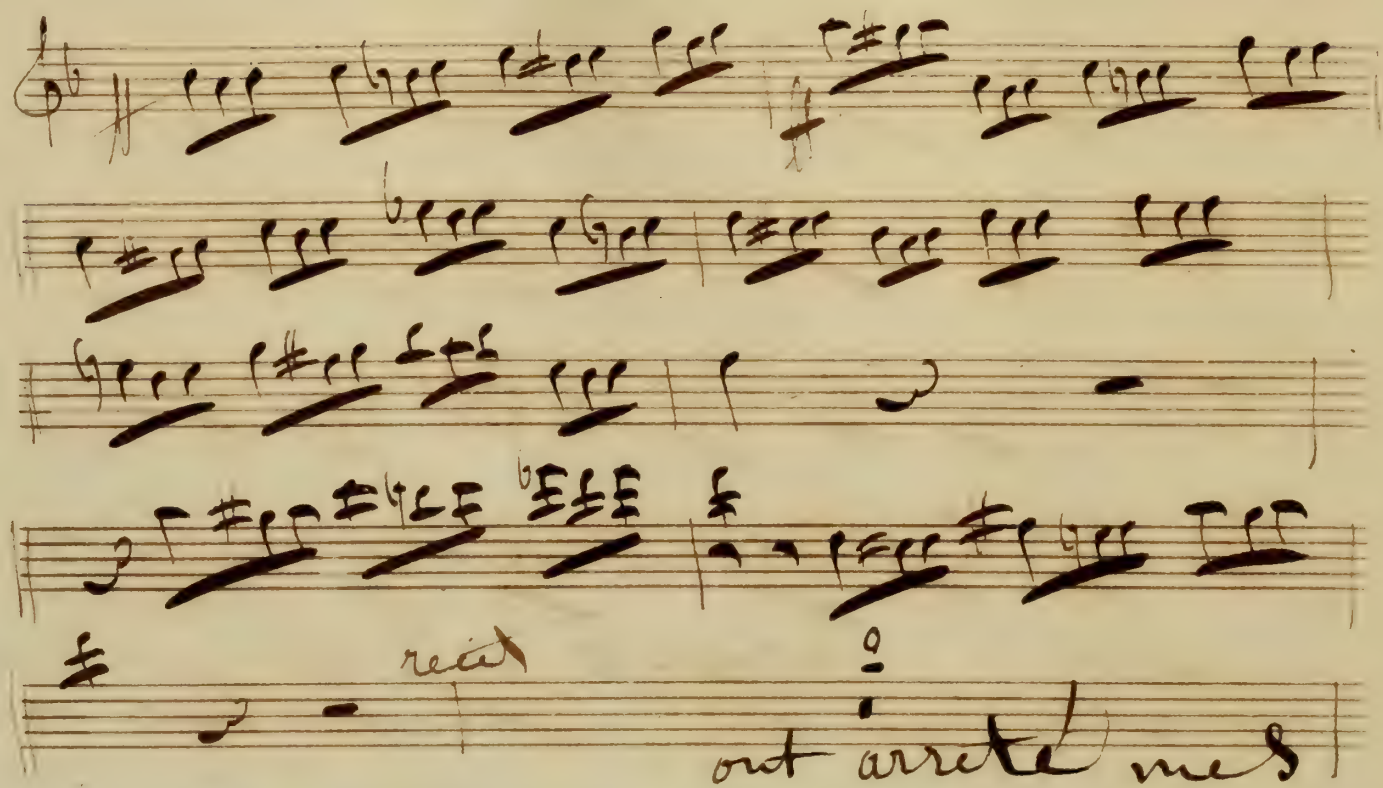 recit
ont arreté mes